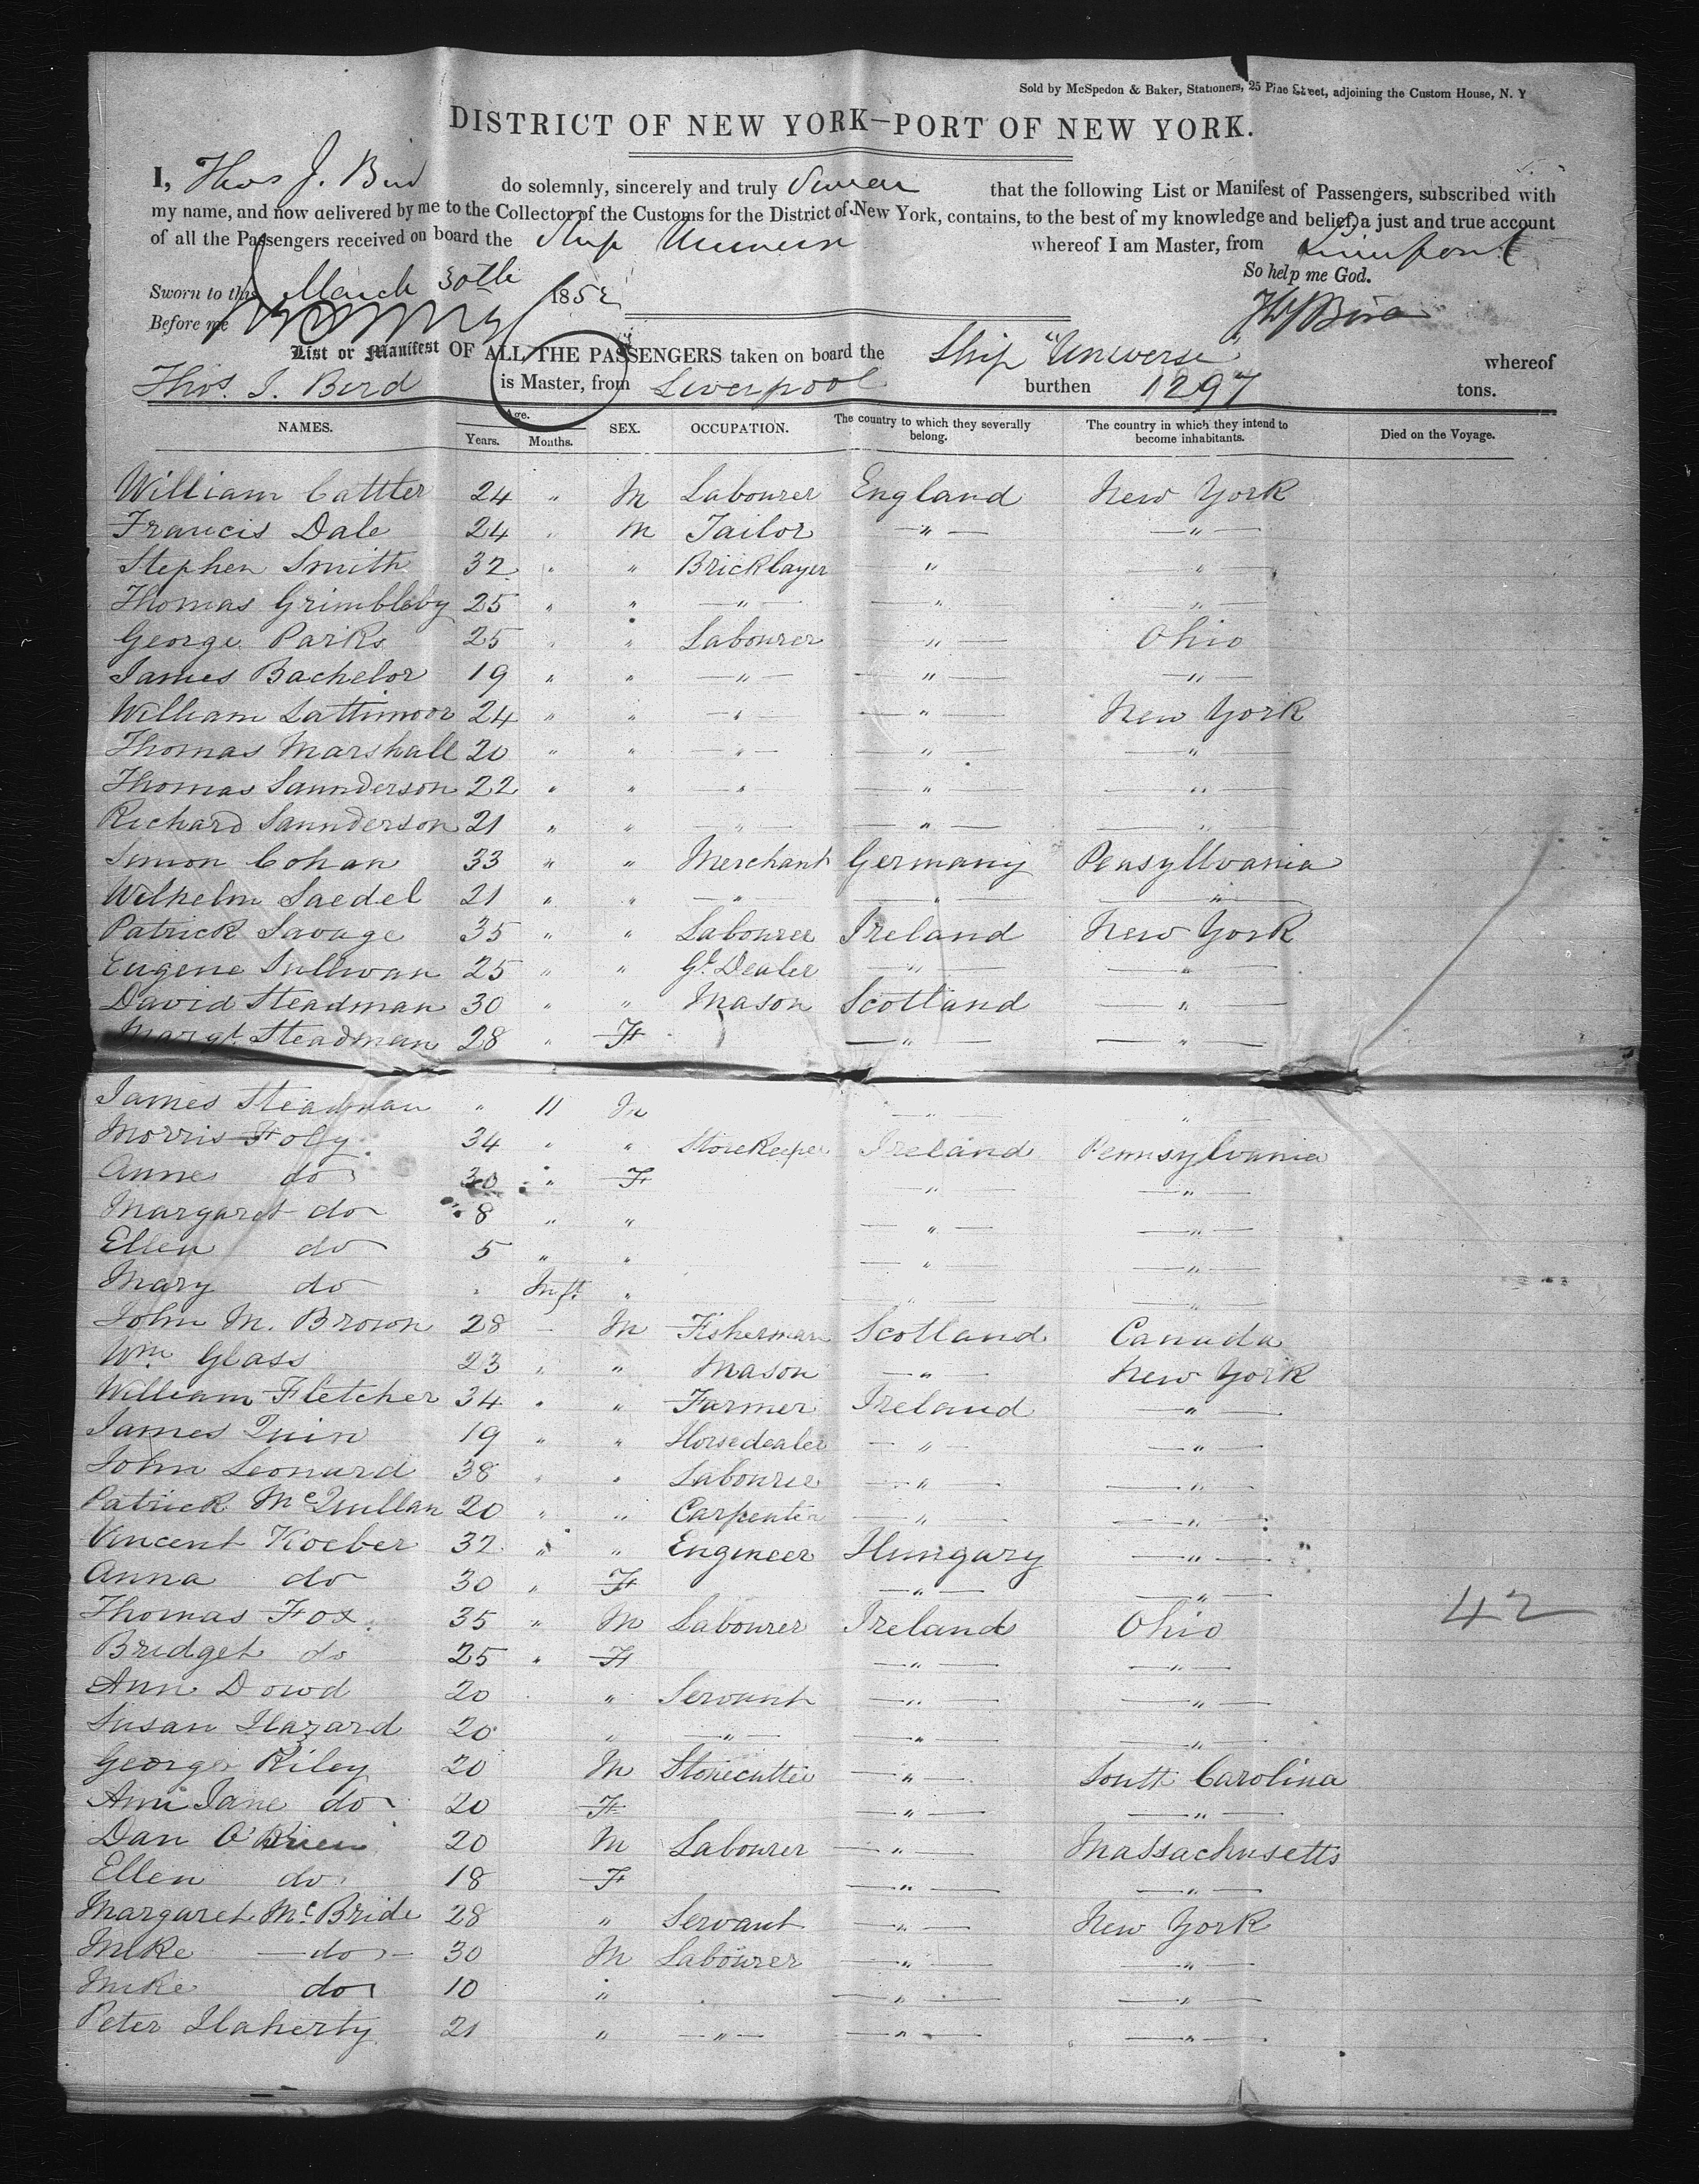 Sold by McSpedon & Baker, Stationers, 25 Pine Street, adjoining the Custom House, N. Y
DISTRICT OF NEW YORK—PORT OF NEW YORK.
I, Thos J. Bird do solemnly, sincerely and truly Swear that the following List or Manifest of Passengers, subscribed with
my name, and now delivered by me to the Collector of the Customs for the District of New York, contains, to the best of my knowledge and belief, a just and true account
of all the Passengers received on board the Ship Universe whereof I am Master, from Liverpool
So help me God.
Sworn to this March 30th 1852
Before me
List or Manifest OF ALL THE PASSENGERS taken on board the Ship "Universe" whereof
Thos. J. Bird is Master, from Liverpool burthen 1297 tons.
NAMES. Age. Years. Months. SEX. OCCUPATION. The country to which they severally belong. The country in which they intend to become inhabitants. Died on the Voyage.
William Cattler 24 " M Labourer England New York
Francis Dale 24 " M Tailor " "
Stephen Smith 32 " " Bricklayer " "
Thomas Grimbleby 25 " " " " "
George Parks 25 " " Labourer " Ohio
James Bachelor 19 " " " " "
William Lattimoor 24 " " " " New York
Thomas Marshall 20 " " " " "
Thomas Saunderson 22 " " " " "
Richard Saunderson 21 " " " " "
Simon Cohan 33 " " Merchant Germany Pensyllvania
Wilhelm Saedel 21 " " " " "
Patrick Savage 35 " " Labourer Ireland New York
Eugene Sullivan 25 " " Gl. Dealer " "
David Steadman 30 " " Mason Scotland "
Margt. Steadman 28 " F " "
James Steadman " 11 M " "
Morris Foly 34 " " Storekeeper Ireland Pennsylvania
Anne do 30 " F " "
Margaret do 8 " " " "
Ellen do 5 " " " "
Mary do " Inft. " " "
John M. Brown 28 M Fisherman Scotland Canada
Wm Glass 23 " " Mason " New York
William Fletcher 34 " " Farmer Ireland "
James Quin 19 " " Horsedealer " "
John Leonard 38 " " Labourer " "
Patrick McQuillan 20 " " Carpenter " "
Vincent Kocber 32 " " Engineer Hungary "
Anna do 30 " F " "
Thomas Fox 35 " M Labourer Ireland Ohio 42
Bridget do 25 " F " "
Ann Dowd 20 " Servant " "
Susan Hazard 20 " " " "
George Riley 20 M Stonecutter " South Carolina
Ann Jane do 20 F " "
Dan O'Brien 20 M Labourer " Massachusetts
Ellen do 18 F " "
Margaret McBride 28 " Servant " New York
Mike do 30 M Labourer " "
Mike do 10 " " "
Peter Flaherty 21 " " " "